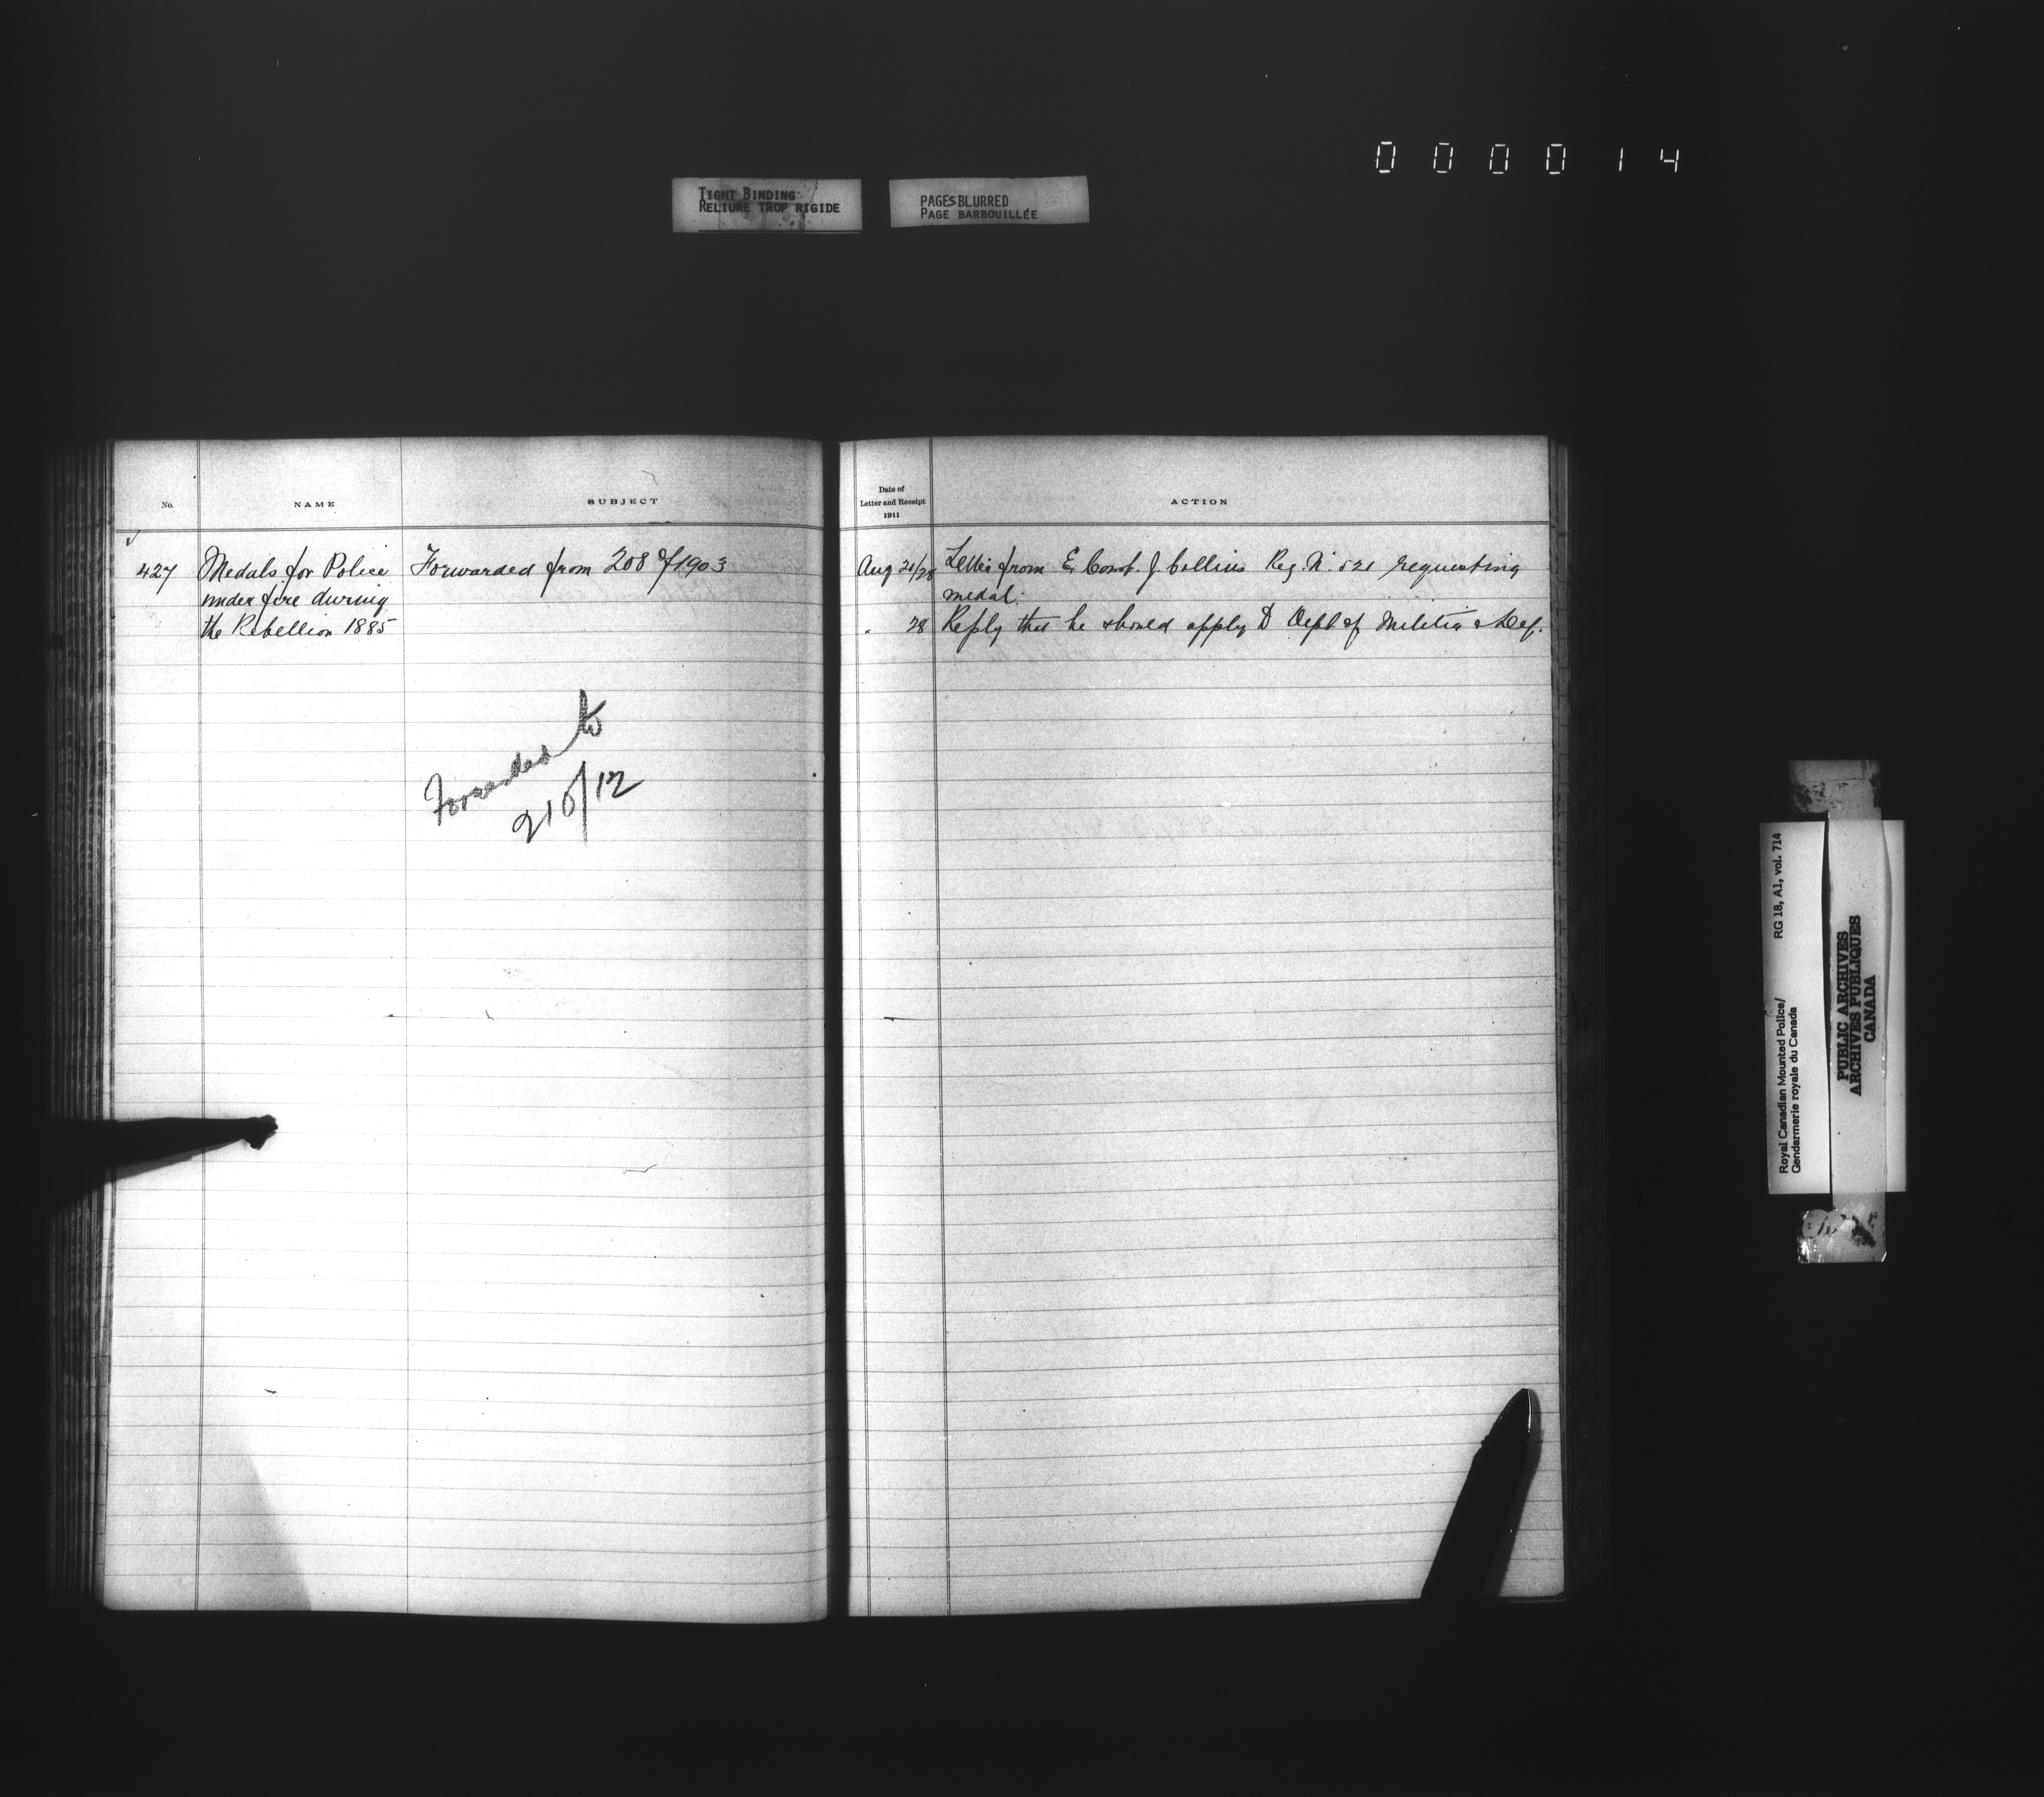 000014
TIGHT BINDING
RELIURE TROP RIGIDE
PAGES BLURRED
PAGE BARBOUILLÉE
No.
NAME
SUBJECT
427
Medals for Police
under fire during
the Rebellion 1885
Forwarded from 208 of 1903
Forwarded to
210/12
Date of
Letter and Receipt
1911
ACTION
Aug 21/28 Letter from Ex Const. J. Collins Reg. No. 521 requesting
medal.
" 28 Reply that he should apply to Dept of Militia & Def.
Royal Canadian Mounted Police/ RG 18, A1, vol. 714
Gendarmerie royale du Canada
PUBLIC ARCHIVES
ARCHIVES PUBLIQUES
CANADA